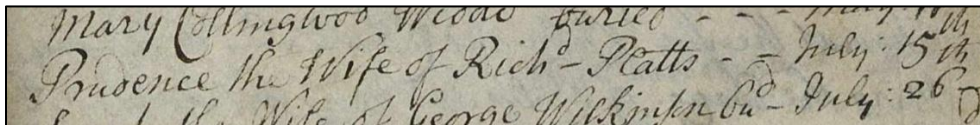 Mary Collingwood Widdo buried - - - May:
Prudence the Wife of Richd - Platts - - July: 15th
the Wife of George Wilkinson bud - July: 26